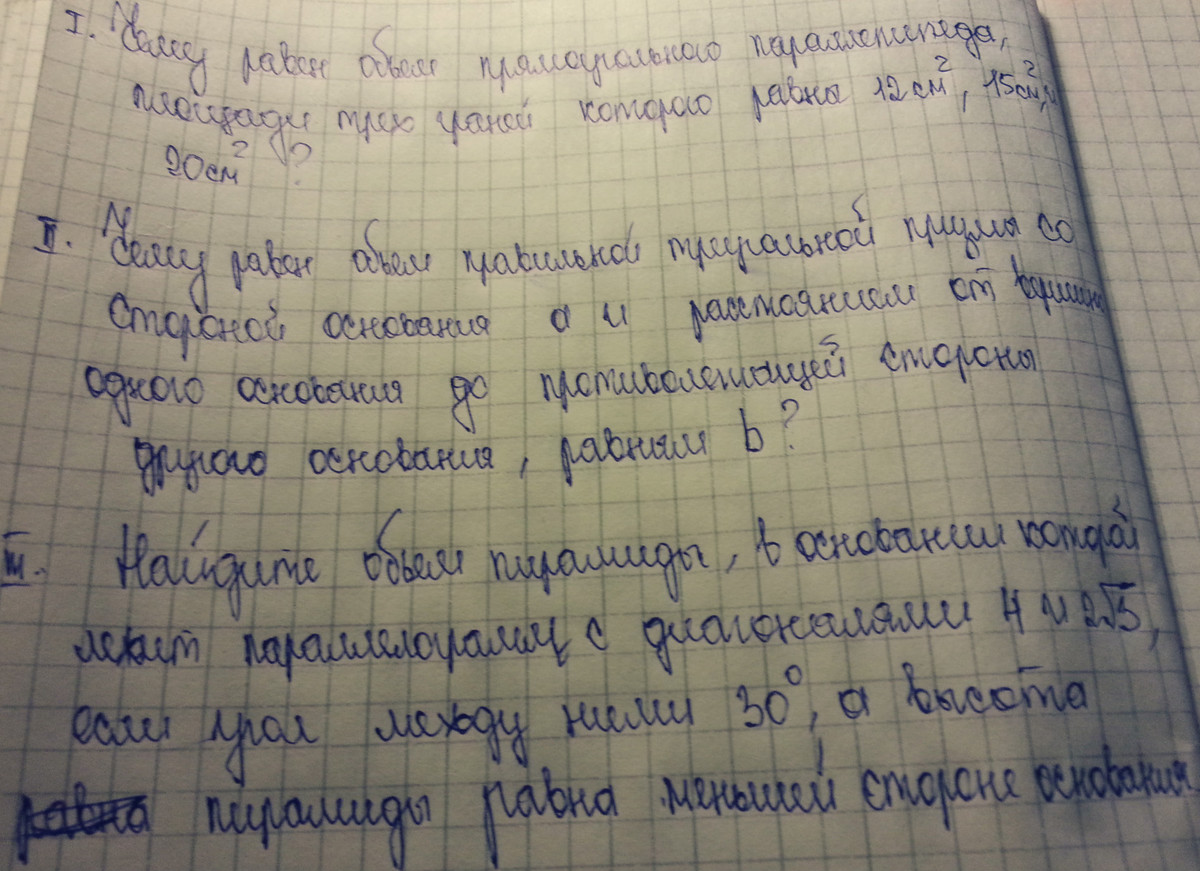 I. Чему равен объем прямоугольного параллепипеда,
площади трех граней которого равны 12 см², 15 см², и
20 см² ?
II. Чему равен объем правильной треугольной призмы со
стороной основания a и расстоянием от вершины
одного основания до противолежащей стороны
другого основания, равным b?
III. Найдите объем пирамиды, в основании которой
лежит параллелограмм с диагоналями 4 и 2√3,
если угол между ними 30°, а высота
равна пирамиды равна меньшей стороне основания